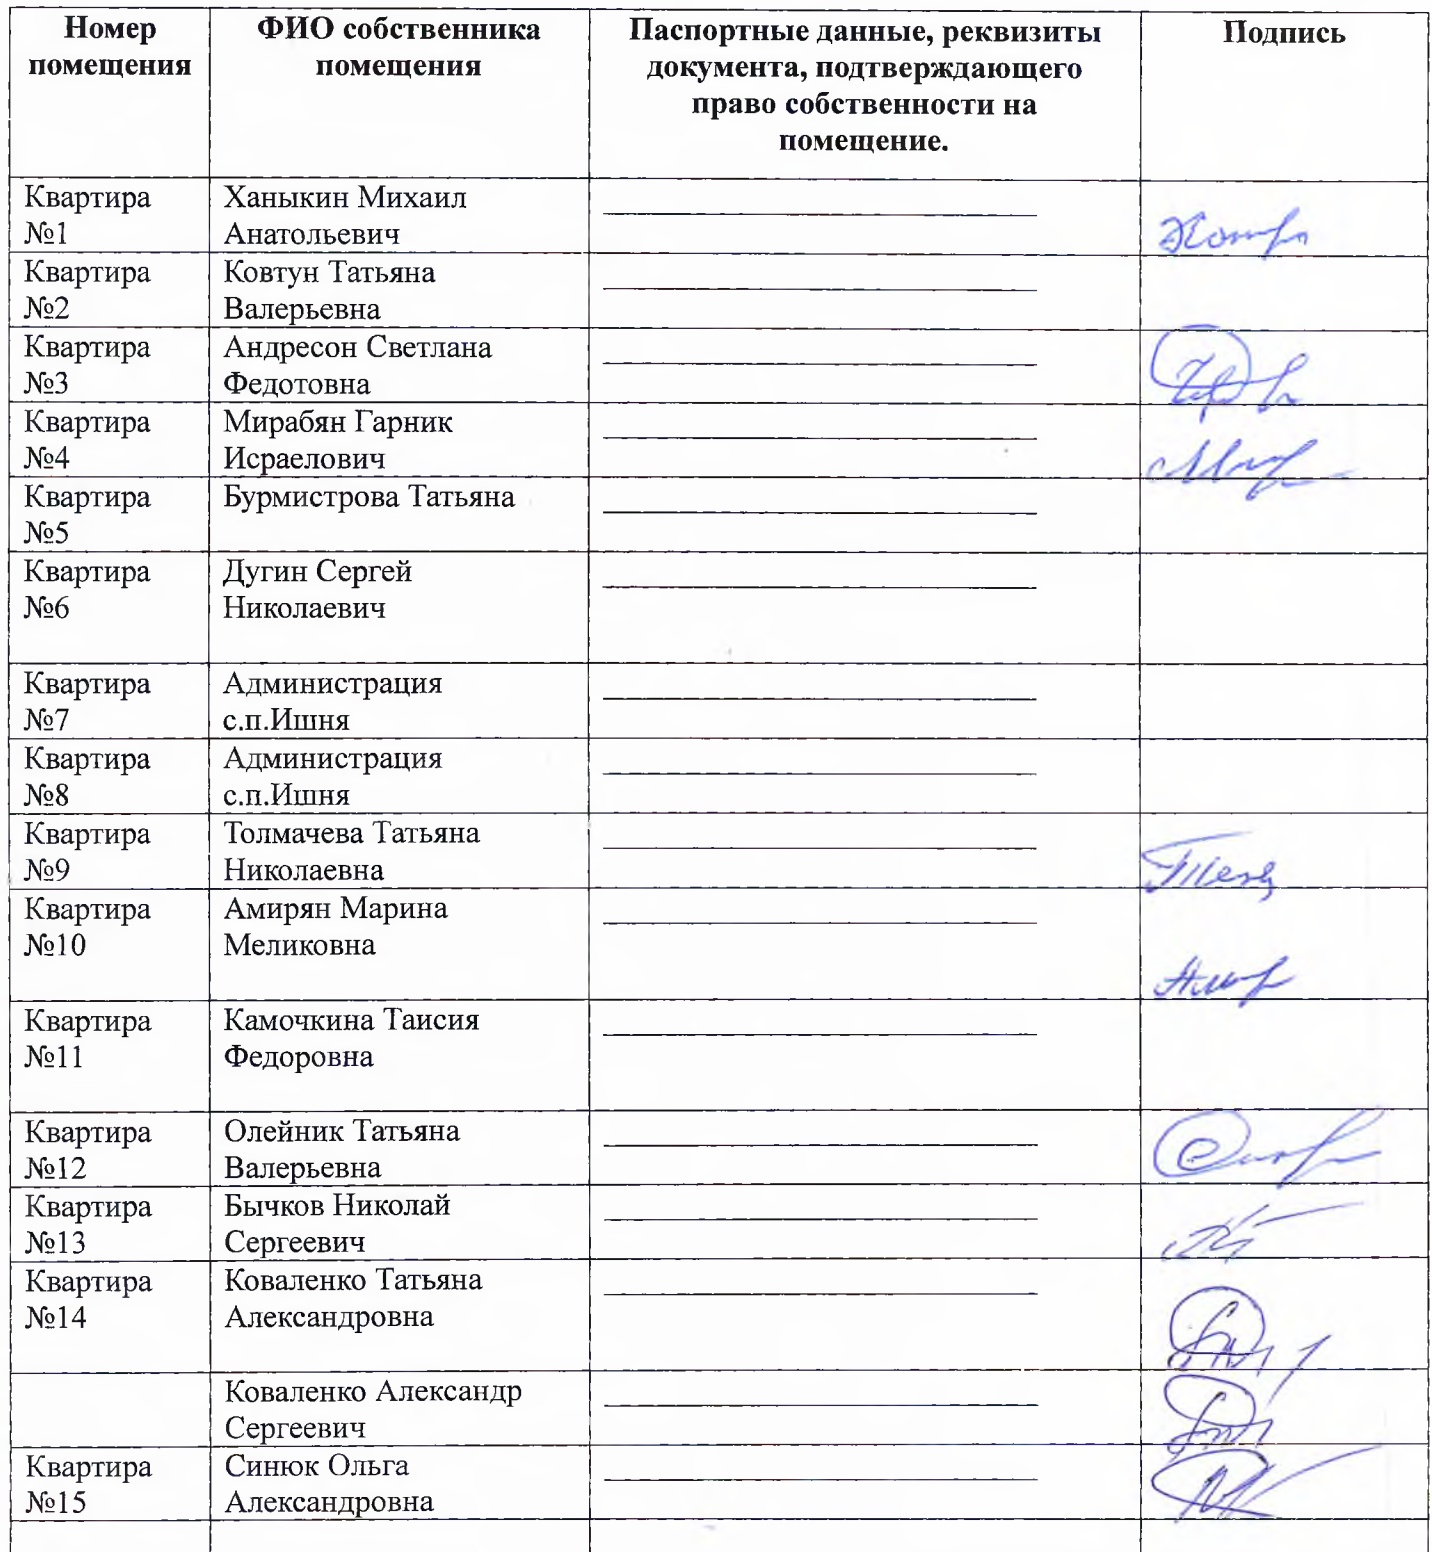 Номер
помещения
ФИО собственника
помещения
Паспортные данные, реквизиты
документа, подтверждающего
право собственности на
помещение.
Подпись
Квартира
№1
Ханыкин Михаил
Анатольевич
Квартира
№2
Ковтун Татьяна
Валерьевна
Квартира
№3
Андресон Светлана
Федотовна
Квартира
№4
Мирабян Гарник
Исраелович
Квартира
№5
Бурмистрова Татьяна
Квартира
№6
Дугин Сергей
Николаевич
Квартира
№7
Администрация
с.п.Ишня
Квартира
№8
Администрация
с.п.Ишня
Квартира
№9
Толмачева Татьяна
Николаевна
Квартира
№10
Амирян Марина
Меликовна
Квартира
№11
Камочкина Таисия
Федоровна
Квартира
№12
Олейник Татьяна
Валерьевна
Квартира
№13
Бычков Николай
Сергеевич
Квартира
№14
Коваленко Татьяна
Александровна
Коваленко Александр
Сергеевич
Квартира
№15
Синюк Ольга
Александровна